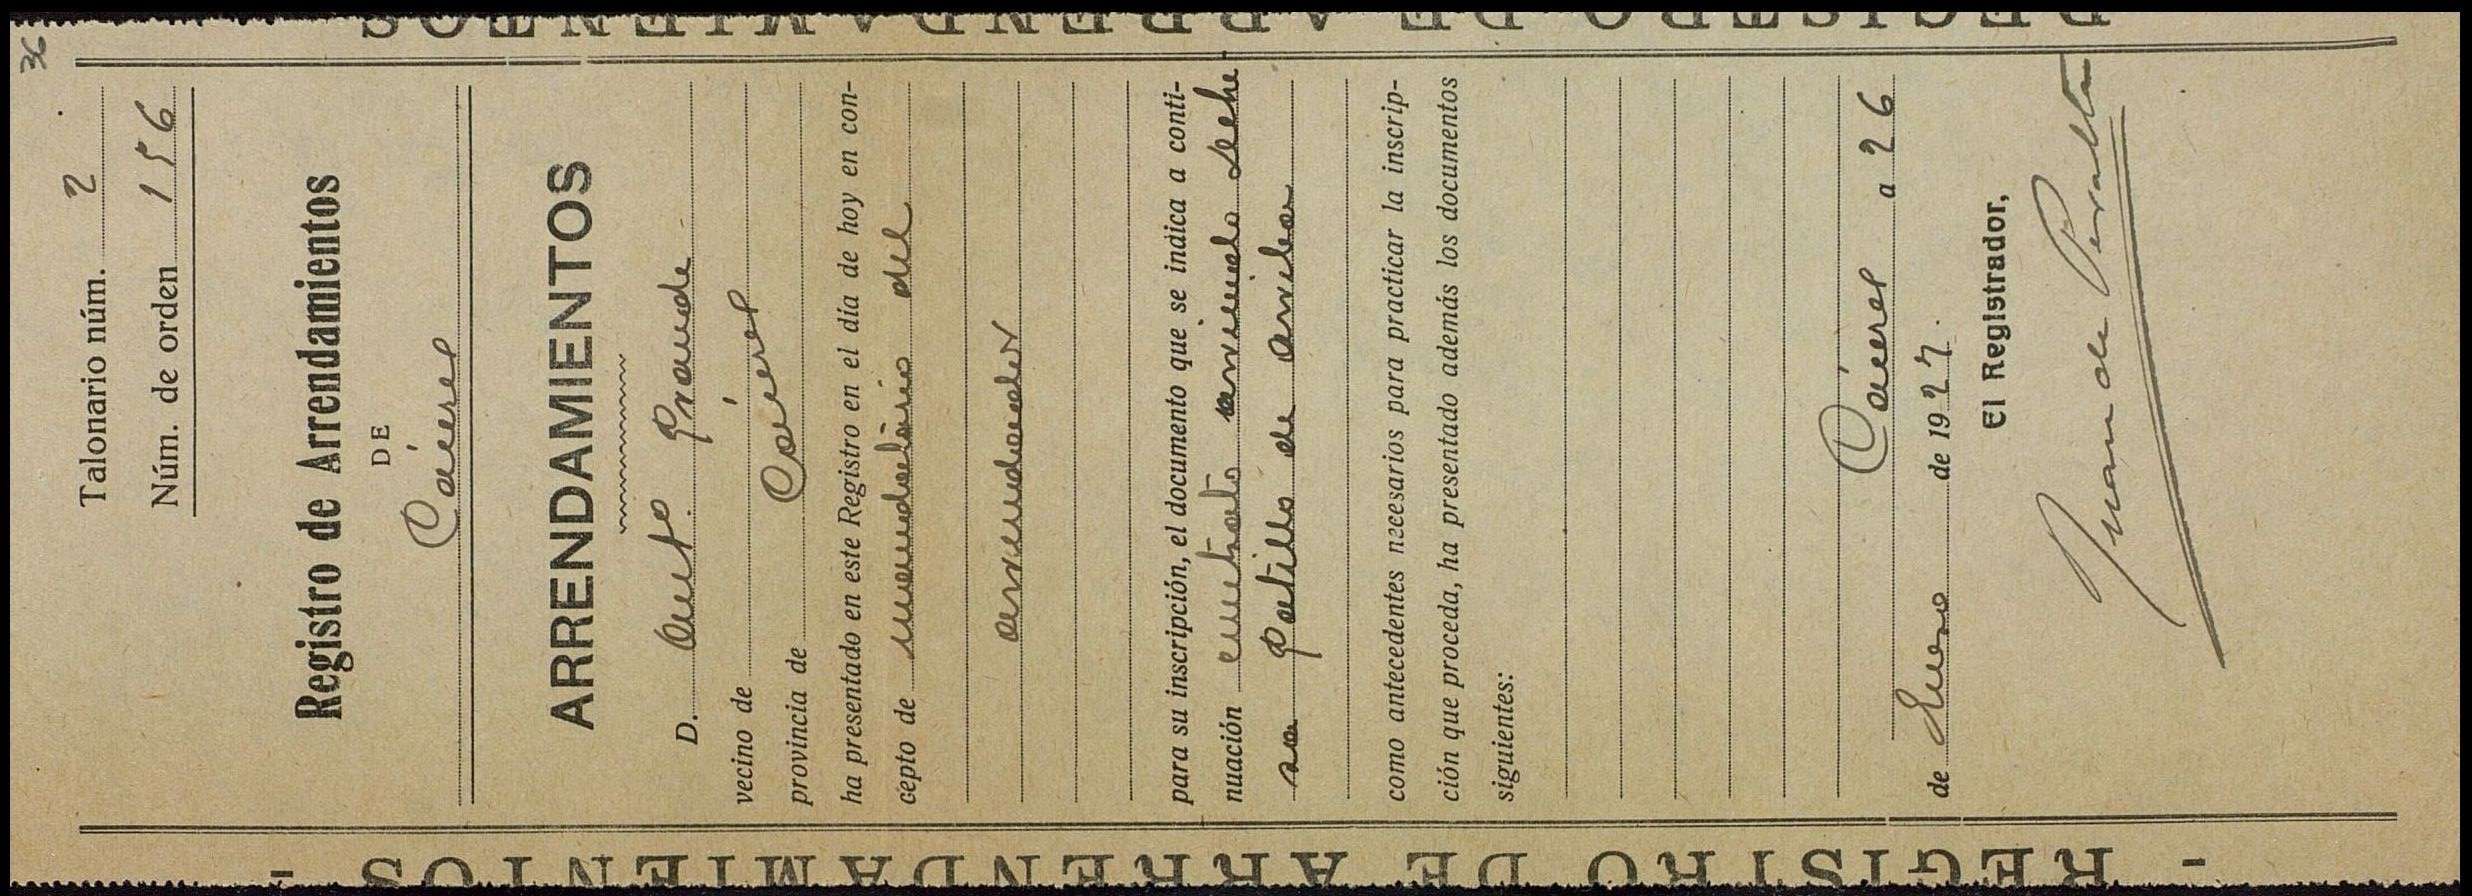 36
Talonario núm. 2
Núm. de orden 156
Registro de Arrendamientos
DE
Cáceres
ARRENDAMIENTOS
D. Anto Grande
vecino de
provincia de Cáceres
ha presentado en este Registro en el día de hoy en con-
cepto de mandatario del
arrendador
para su inscripción, el documento que se indica a conti-
nuación contrato arriendo dehe
sa Patilla de arriba
como antecedentes necesarios para practicar la inscrip-
ción que proceda, ha presentado además los documentos
siguientes:
Cáceres a 26
de Enero de 1927.
El Registrador,
Juan de Peralta
REGISTRO DE ARRENDAMIENTOS
- REGISTRO DE ARRENDAMIENTOS -